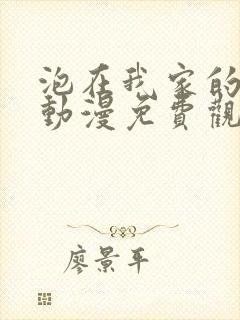 泡在我家的
動漫免費觀
廖景平